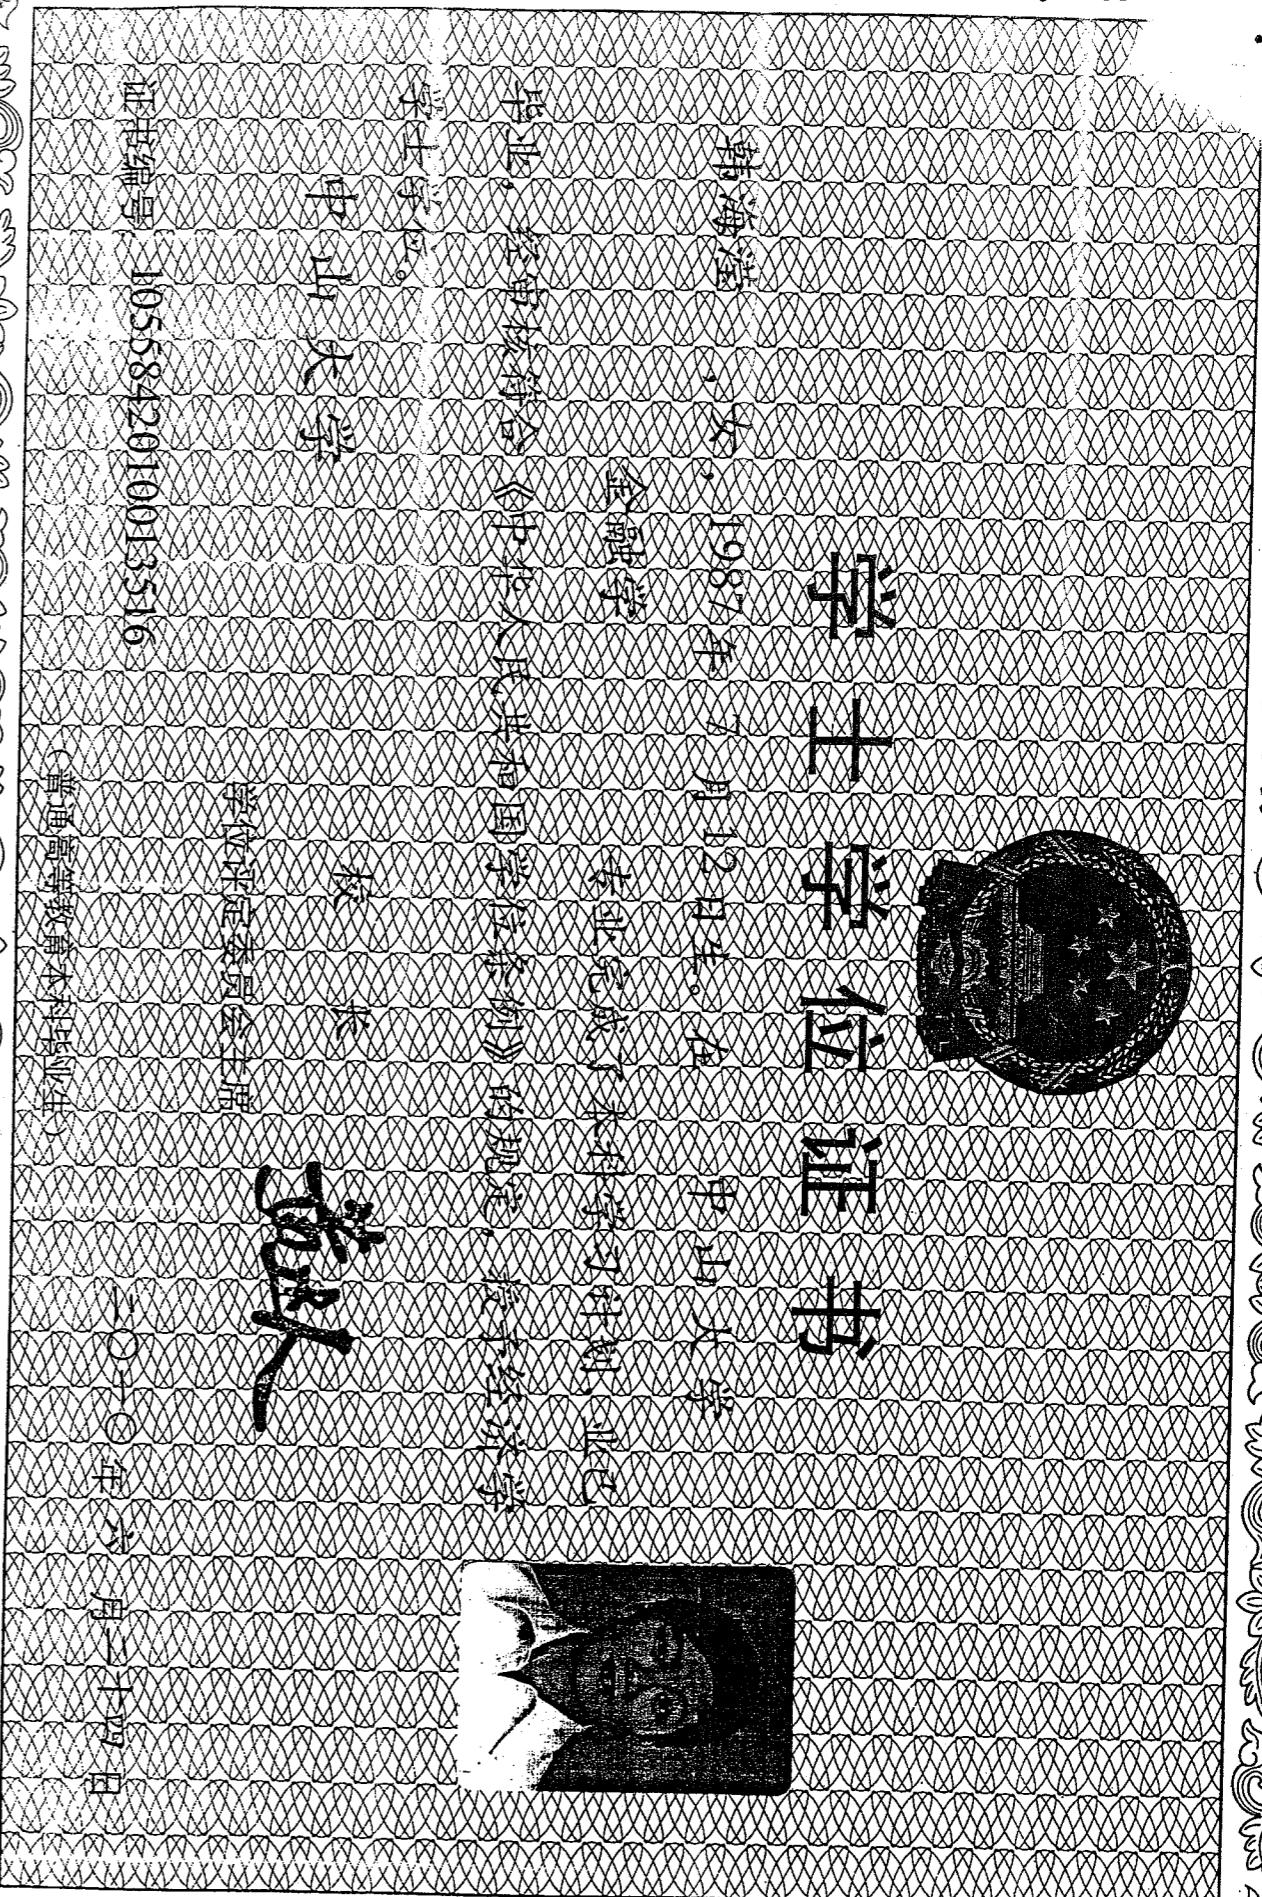 学士学位证书
韩海滢，女，1987年7月12日生。在中山大学
金融学专业完成了本科学习计划，业已
毕业，经审核符合《中华人民共和国学位条例》的规定，授予经济学
学士学位。
中山大学
校长
学位评定委员会主席
证书编号：1055842010013516
二〇一〇年六月二十四日
（普通高等教育本科毕业生）